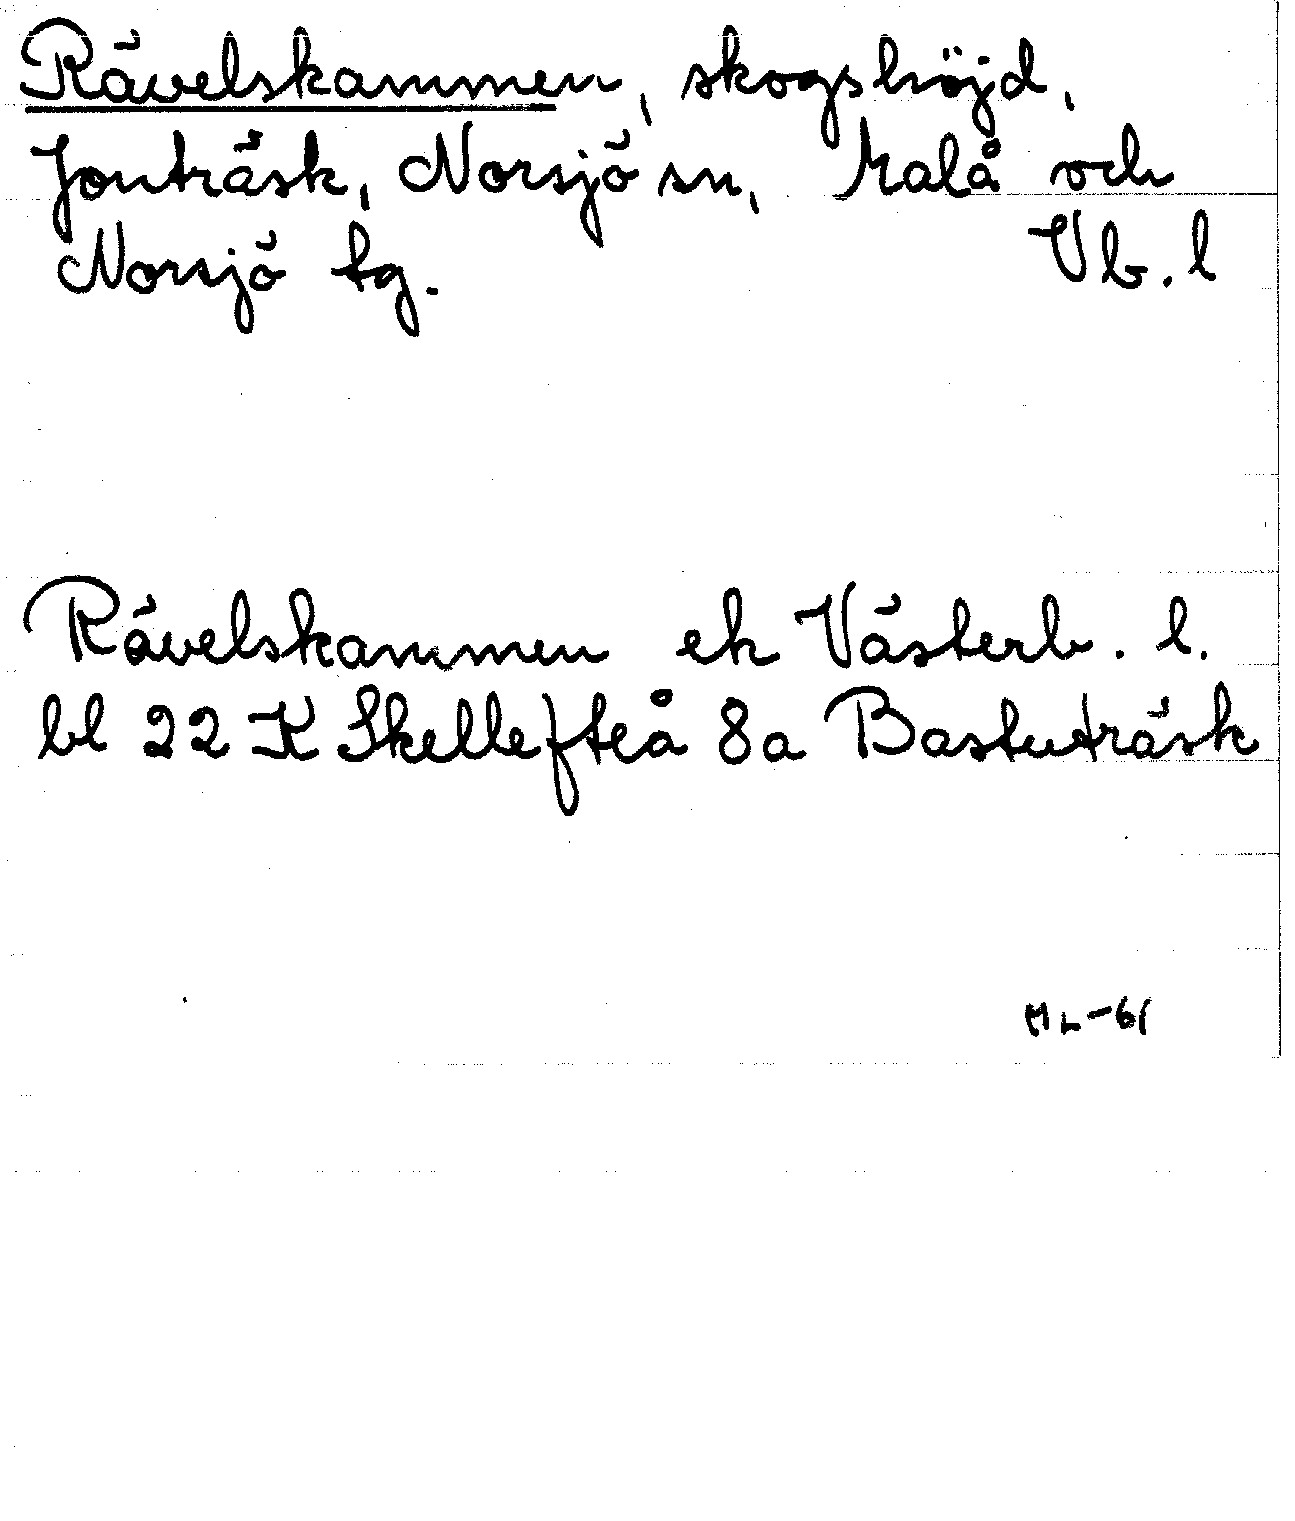 Rävelskammen, skogshöjd,
Jonträsk, Norsjö sn, Malå och
Norsjö tg. Vb. l
Rävelskammen ek Västerb. l.
bl 22 K Skellefteå 8a Bastuträsk
ML-61